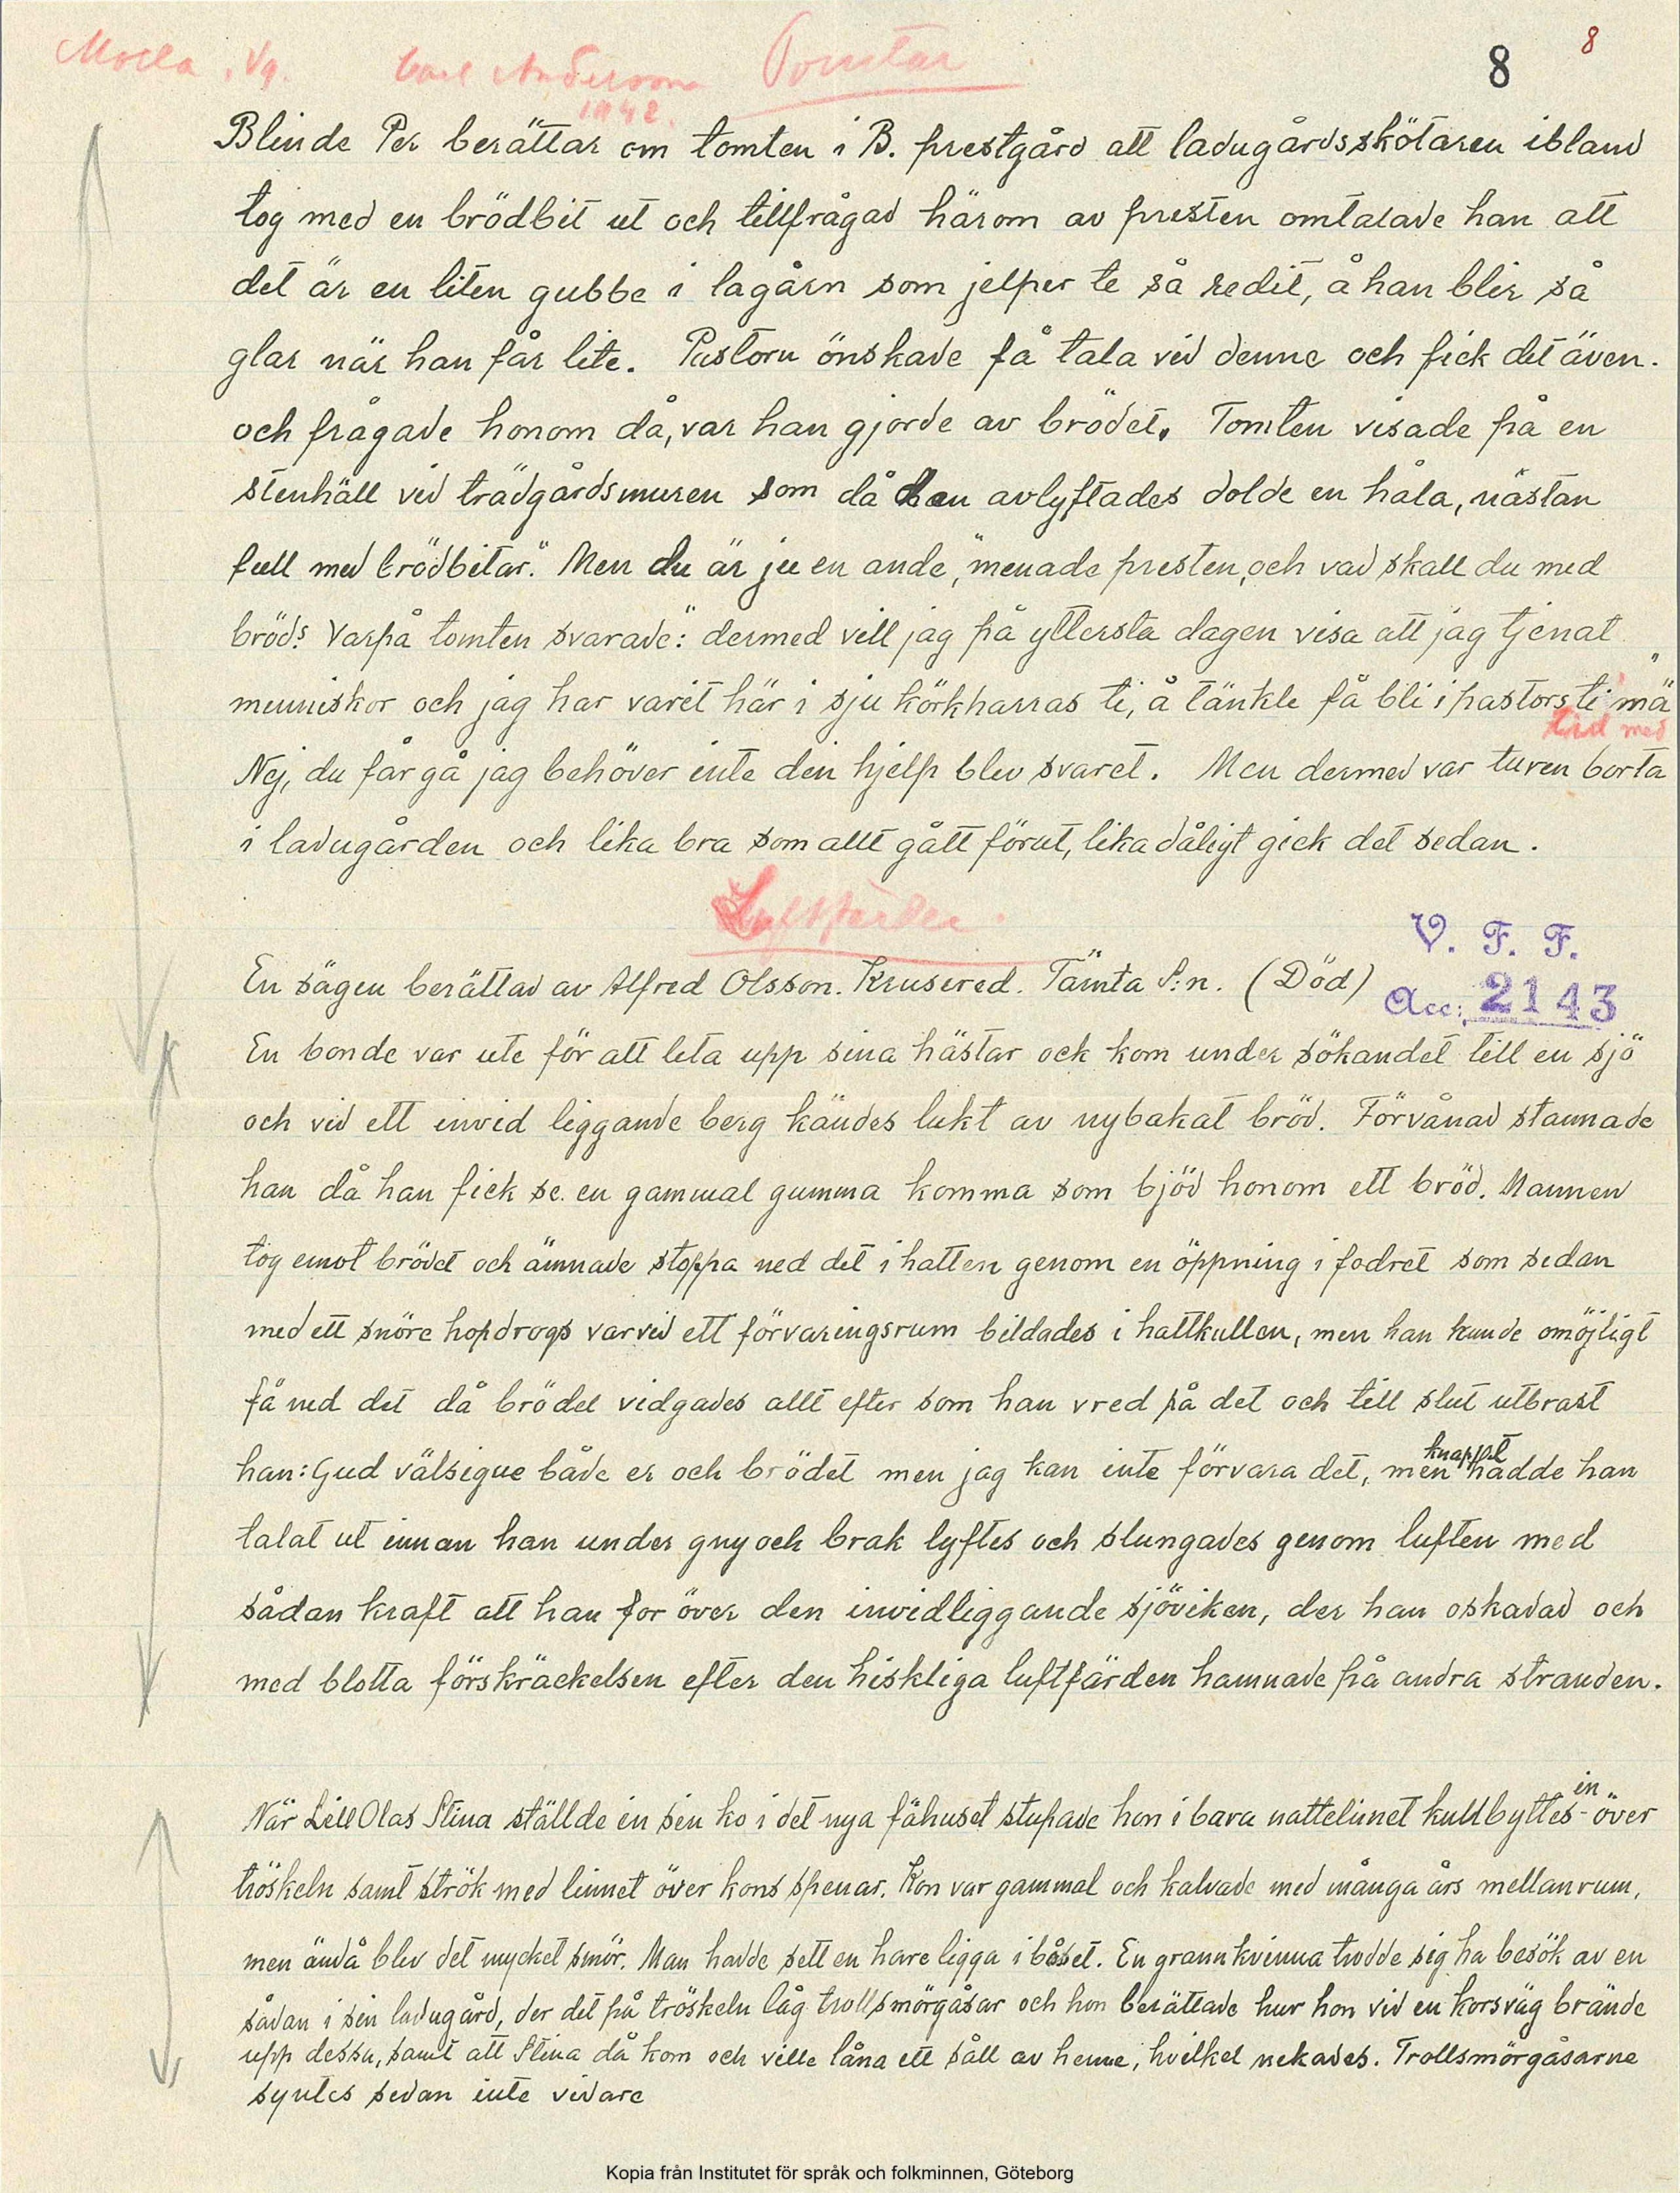 Molla, Vg. Carl Anderson Tomtar 8 8
1942.
Blinde Per berättar om tomten i B. prestgård att ladugårdsskötaren ibland
tog med en brödbit ut och tillfrågad härom av presten omtalade han att
det är en liten gubbe i lagårn som jelper te så redit, å han blir så
glar när han får lite. Pastorn önskade få tala vid denne och fick det även.
och frågade honom då, var han gjorde av brödet. Tomten visade på en
stenhäll vid trädgårdsmuren som då den avlyftades dolde en håla, nästan
full med brödbitar. "Men du är ju en ande," menade presten, och vad skall du med
bröd? Varpå tomten svarade: "dermed vill jag på yttersta dagen visa att jag tjenat
menniskor och jag har varit här i sju körkharras ti, å tänkte få bli i pastors ti mä"
tid med
Nej, du får gå jag behöver inte din hjelp blev svaret. Men dermed var turen borta
i ladugården och lika bra som allt gått förut, lika dåligt gick det sedan.
Luftfärden.
V. F. F.
En sägen berättad av Alfred Olsson. Krusered. Tämta S:n. (Död)
Acc: 2143
En bonde var ute för att leta upp sina hästar ock kom under sökandet till en sjö
och vid ett invid liggande berg kändes lukt av nybakat bröd. Förvånad stannade
han då han fick se en gammal gumma komma som bjöd honom ett bröd. Mannen
tog emot brödet och ämnade stoppa ned det i hatten genom en öppning i fodret som sedan
med ett snöre hopdrogs varvid ett förvaringsrum bildades i hattkullen, men han kunde omöjligt
få ned det då brödet vidgades allt efter som han vred på det och till slut utbrast
han: Gud välsigne både er och brödet men jag kan inte förvara det, men knappt hadde han
talat ut innan han under gny och brak lyftes och slungades genom luften med
sådan kraft att han for över den invidliggande sjöviken, der han oskadad och
med blotta förskräckelsen efter den hiskliga luftfärden hamnade på andra stranden.
När Lill Olas Stina ställde in sin ko i det nya fähuset stupade hon i bara nattelinnet kullbyttes in över
tröskeln samt strök med linnet över kons spenar. Kon var gammal och kalvade med många års mellanrum,
men ändå blev det mycket smör. Man hadde sett en hare ligga i båset. En grannkvinna trodde sig ha besök av en
sådan i sin ladugård, der det på tröskeln låg trollsmörgåsar och hon berättade hur hon vid en korsväg brände
upp dessa, samt att Stina då kom och ville låna ett såll av henne, hvilket nekades. Trollsmörgåsarne
syntes sedan inte vidare
Kopia från Institutet för språk och folkminnen, Göteborg